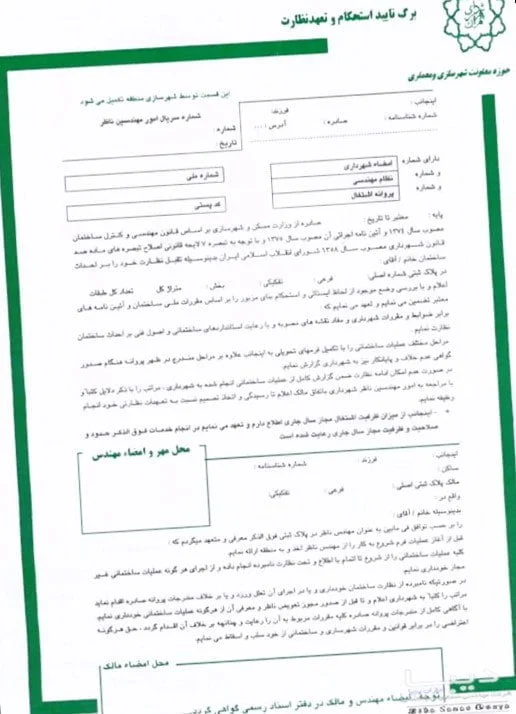 برگ تایید استحکام و تعهد نظارت
حوزه معاونت شهرسازی و معماری
این قسمت توسط شهرسازی منطقه تکمیل می شود
شماره سریال امور مهندسین ناظر
شماره :
تاریخ
اینجانب : فرزند:
شماره شناسنامه : صادره : آدرس : ...
شماره ملی
کد پستی
دارای شماره امضاء شهرداری
و شماره نظام مهندسی
و شماره پروانه اشتغال
پایه : معتبر تا تاریخ : صادره از وزارت مسکن و شهرسازی بر اساس قانون مهندسی و کنترل ساختمان
مصوب سال ۱۳۷٤ و آئین نامه اجرائی آن مصوب سال ۱۳۷۵ و با توجه به تبصره ۷ لایحه قانونی اصلاح تبصره های ماده صد
قانون شهرداری مصوب سال ۱۳۵۸ شورای انقلاب اسلامی ایران بدینوسیله تقبل نظارت خود را بر احداث
ساختمان خانم / آقای :
در پلاک ثبتی شماره اصلی: فرعی : تفکیکی : بخش : متراژ کل تعداد کل طبقات
اعلام و با بررسی وضع موجود از لحاظ ایستائی و استحکام بنای مزبور را بر اساس مقررات ملی ساختمان و آئین نامه های
معتبر تضمین می نمایم و تعهد می نمایم که :
برابر ضوابط و مقررات شهرداری و مفاد نقشه های مصوبه و با رعایت استانداردهای ساختمانی و اصول فنی بر احداث ساختمان
نظارت نمایم.
مراحل مختلف عملیات ساختمانی را با تکمیل فرمهای تحویلی به اینجانب علاوه بر مراحل مندرج در ظهر پروانه هنگام صدور
گواهی عدم خلاف و پایانکار نیز به شهرداری گزارش نمایم.
در صورت عدم امکان ادامه نظارت ضمن گزارش کامل از عملیات ساختمانی انجام شده به شهرداری ، مراتب را با ذکر دلایل کتباً و
با مراجعه به امور مهندسین ناظر شهرداری باتفاق مالک اعلام تا رسیدگی و اتخاذ تصمیم نسبت به تعهدات نظارتی خود انجام
وظیفه نمایم.
- اینجانب از میزان ظرفیت اشتغال مجاز سال جاری اطلاع دارم و تعهد می نمایم در انجام خدمات فوق الذکر حدود و
صلاحیت و ظرفیت مجاز سال جاری رعایت شده است
محل مهر و امضاء مهندس
اینجانب : فرزند شماره شناسنامه :
ساکن :
مالک پلاک ثبتی اصلی : فرعی : تفکیکی:
واقع در :
بدینوسیله خانم / آقای :
را بر حسب توافق فی مابین به عنوان مهندس ناظر در پلاک ثبتی فوق الذکر معرفی و متعهد میگردم که :
قبل از آغاز عملیات فرم شروع به کار را از مهندس ناظر اخذ و به منطقه ارائه نمایم.
کلیه عملیات ساختمانی را از شروع تا اتمام با اطلاع و تحت نظارت نامبرده انجام داده و از اجرای هر گونه عملیات ساختمانی غیر
مجاز خودداری نمایم.
در صورتیکه نامبرده از نظارت ساختمان خودداری و یا در اجرای آن تعلل ورزد و یا بر خلاف مندرجات پروانه صادره اقدام نماید
مراتب را کتباً به شهرداری اعلام و تا قبل از صدور مجوز تعویض ناظر و معرفی آن از هرگونه عملیات ساختمانی خودداری نمایم.
با آگاهی کامل از مندرجات پروانه صادره کلیه مقررات مربوط به آن را رعایت و چنانچه بر خلاف آن اقدام گردد ، حق هرگونه
اعتراضی را در برابر قوانین و مقررات شهرسازی و ساختمانی از خود سلب و اسقاط می نمایم.
محل امضاء مالک
امضاء مهندس و مالک در دفتر اسناد رسمی گواهی گردد